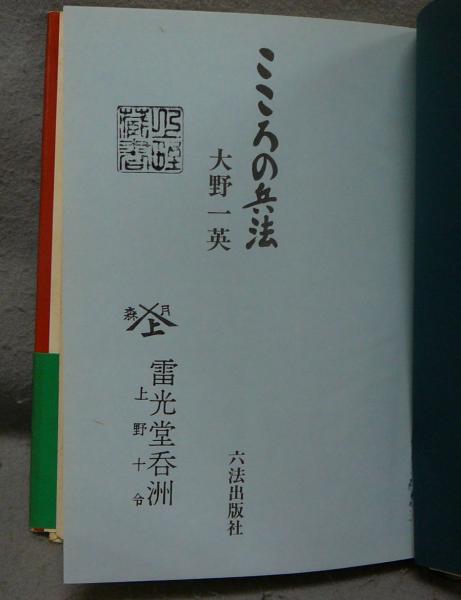 こころの兵法
大野一英
六法出版社
蔵書
森 上 月
雷光堂呑洲
上野十令